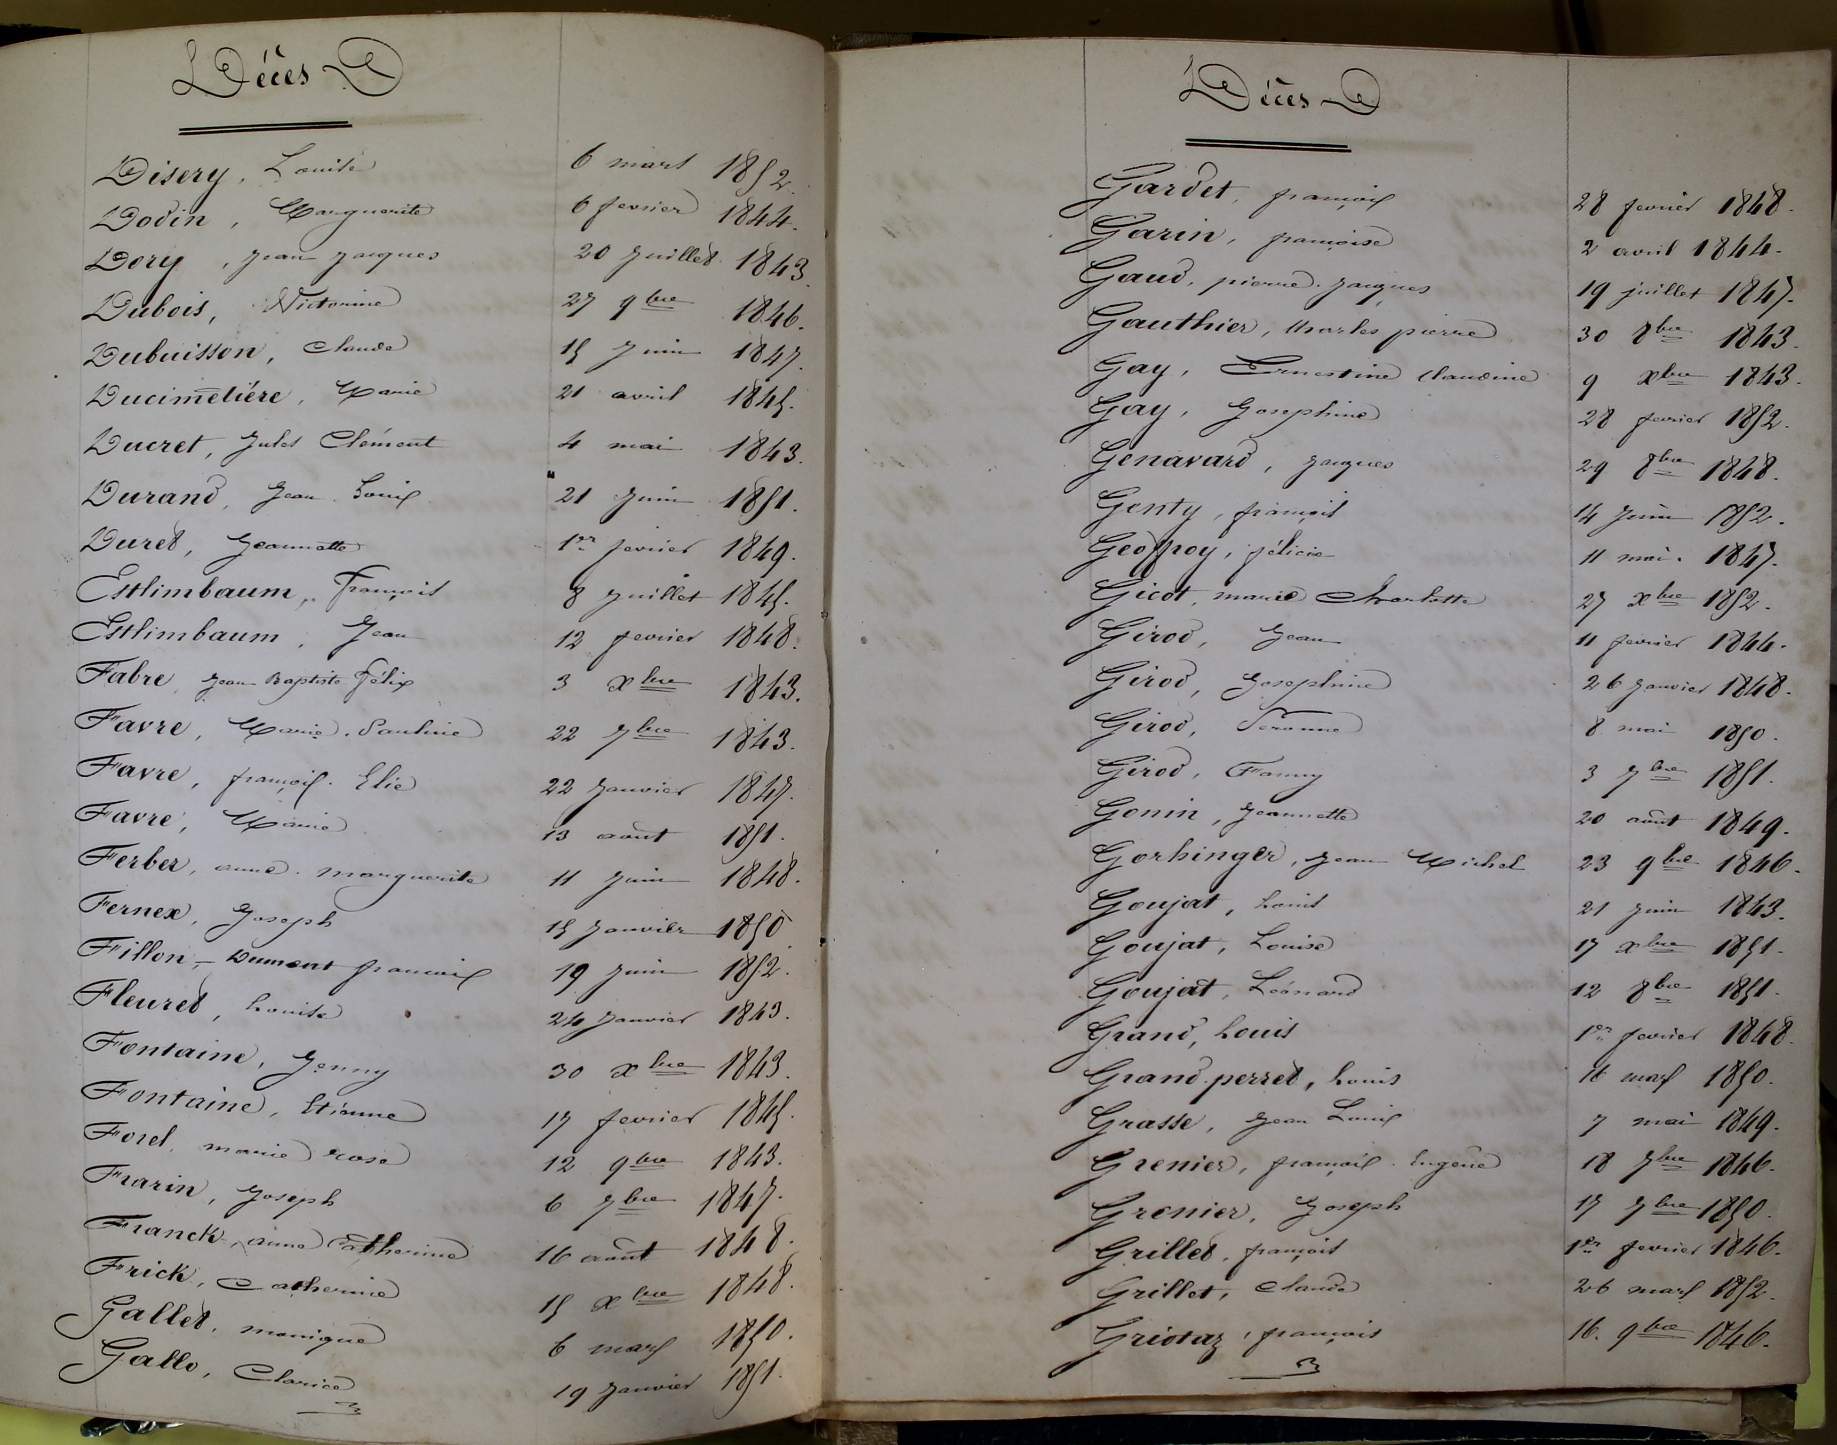 Décès
Disery, Louise 6 mars 1852.
Dodin, Marguerite 6 fevrier 1844.
Dory, Jean Jacques 20 Juillet 1843.
Dubois, Victorine 27 9bre 1846.
Dubuisson, Claude 15 Juin 1847.
Ducimetiére, Marie 21 avril 1845.
Ducret, Jules Clément 4 mai 1843.
Durand, Jean Louis 21 Juin 1851.
Duret, Jeannette 1er fevrier 1849.
Estlimbaum, françois 8 Juillet 1845.
Estlimbaum, Jean 12 fevrier 1848.
Fabre, Jean Baptiste Félix 3 xbre 1843.
Favre, Marie. Pauline 22 7bre 1843.
Favre, françois. Elie 22 Janvier 1847.
Favre, Marie 13 août 1851.
Ferber, anne. marguerite 11 Juin 1848.
Fernex, Joseph 15 Janvier 1850
Fillon,-Dumont françois 19 Juin 1852.
Fleuret, Louise 24 Janvier 1843.
Fontaine, Jenny 30 xbre 1843.
Fontaine, Etienne 17 fevrier 1845.
Forel, marie rose 12 9bre 1843.
Frarin, Joseph 6 7bre 1847.
Franck, anne Catherine 16 août 1848.
Frick, Catherine 15 xbre 1848.
Gallet, monique 6 mars 1850.
Gallo, Clarice 19 Janvier 1851.
Décès
Gardet, françois 28 fevrier 1848.
Garin, françoise 2 avril 1844.
Gaud, pierre. Jacques 19 juillet 1847.
Gauthier, Charles pierre 30 8bre 1843.
Gay, Ernestine Claudine 9 xbre 1843.
Gay, Josephine 28 fevrier 1852.
Genavard, Jacques 29 8bre 1848.
Genty, françois 14 Juin 1852.
Geoffroy, félicie 11 mai. 1847.
Gicot, marie Charlotte 27 xbre 1852.
Girod, Jean 11 fevrier 1844.
Girod, Josephine 26 Janvier 1848.
Girod, 8 mai 1850.
Girod, Fanny 3 7bre 1851.
Gonin, Jeannette 20 août 1849.
Gorhinger, Jean Michel 23 9bre 1846.
Goujat, Louis 21 Juin 1843.
Goujat, Louise 17 xbre 1851.
Goujat, Léonard 12 8bre 1851.
Grand, Louis 1er fevrier 1848.
Grand.perret, Louis 16 mars 1850.
Grasse, Jean Louis 7 mai 1849.
Grenier, françois. Eugène 18 7bre 1846.
Grenier, Joseph 17 7bre 1850.
Grillet, françois 1er fevrier 1846.
Grillet, Claude 26 mars 1852.
Griotaz, françois 16. 9bre 1846.